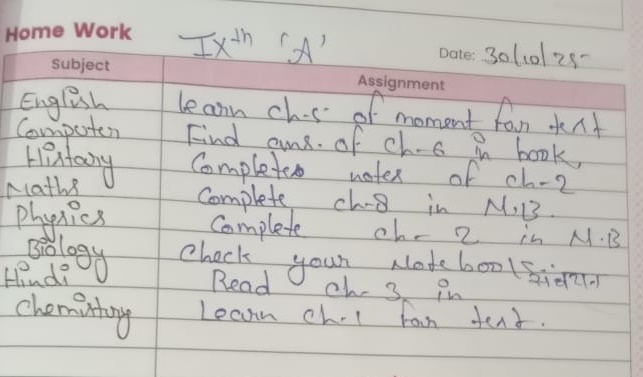 Home Work
IXth 'A'
Date: 30/10/25
Subject Assignment
English Learn ch-5 of moment for test
Computer Find ans. of ch-6 in book,
History Completes notes of ch-2
Maths Complete ch-8 in N.B.
Physics Complete ch- 2 in N.B
Biology Check your Notebook
Hindi Read ch-3 in संचयन
Chemistry Learn ch-1 for test.